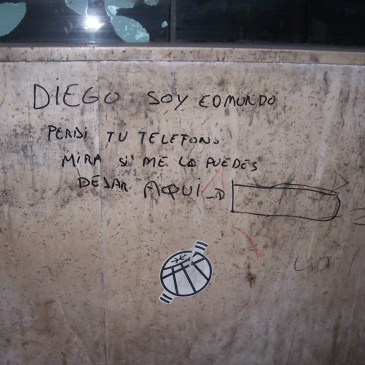 DIEGO SOY EDMUNDO
PERDI TU TELEFONO
MIRA SI ME LO PUEDES
DEJAR AQUI